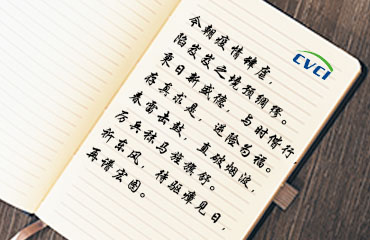 CVCI
今朝疫情肆虐，
陷岌岌之境预绸缪。
秉日新盛德，与时偕行，
存真求是，逆险为福。
春雷击鼓，直破烟波，
厉兵秣马旌旗舒。
祈东风，待驱瘴见日，
再谱宏图。